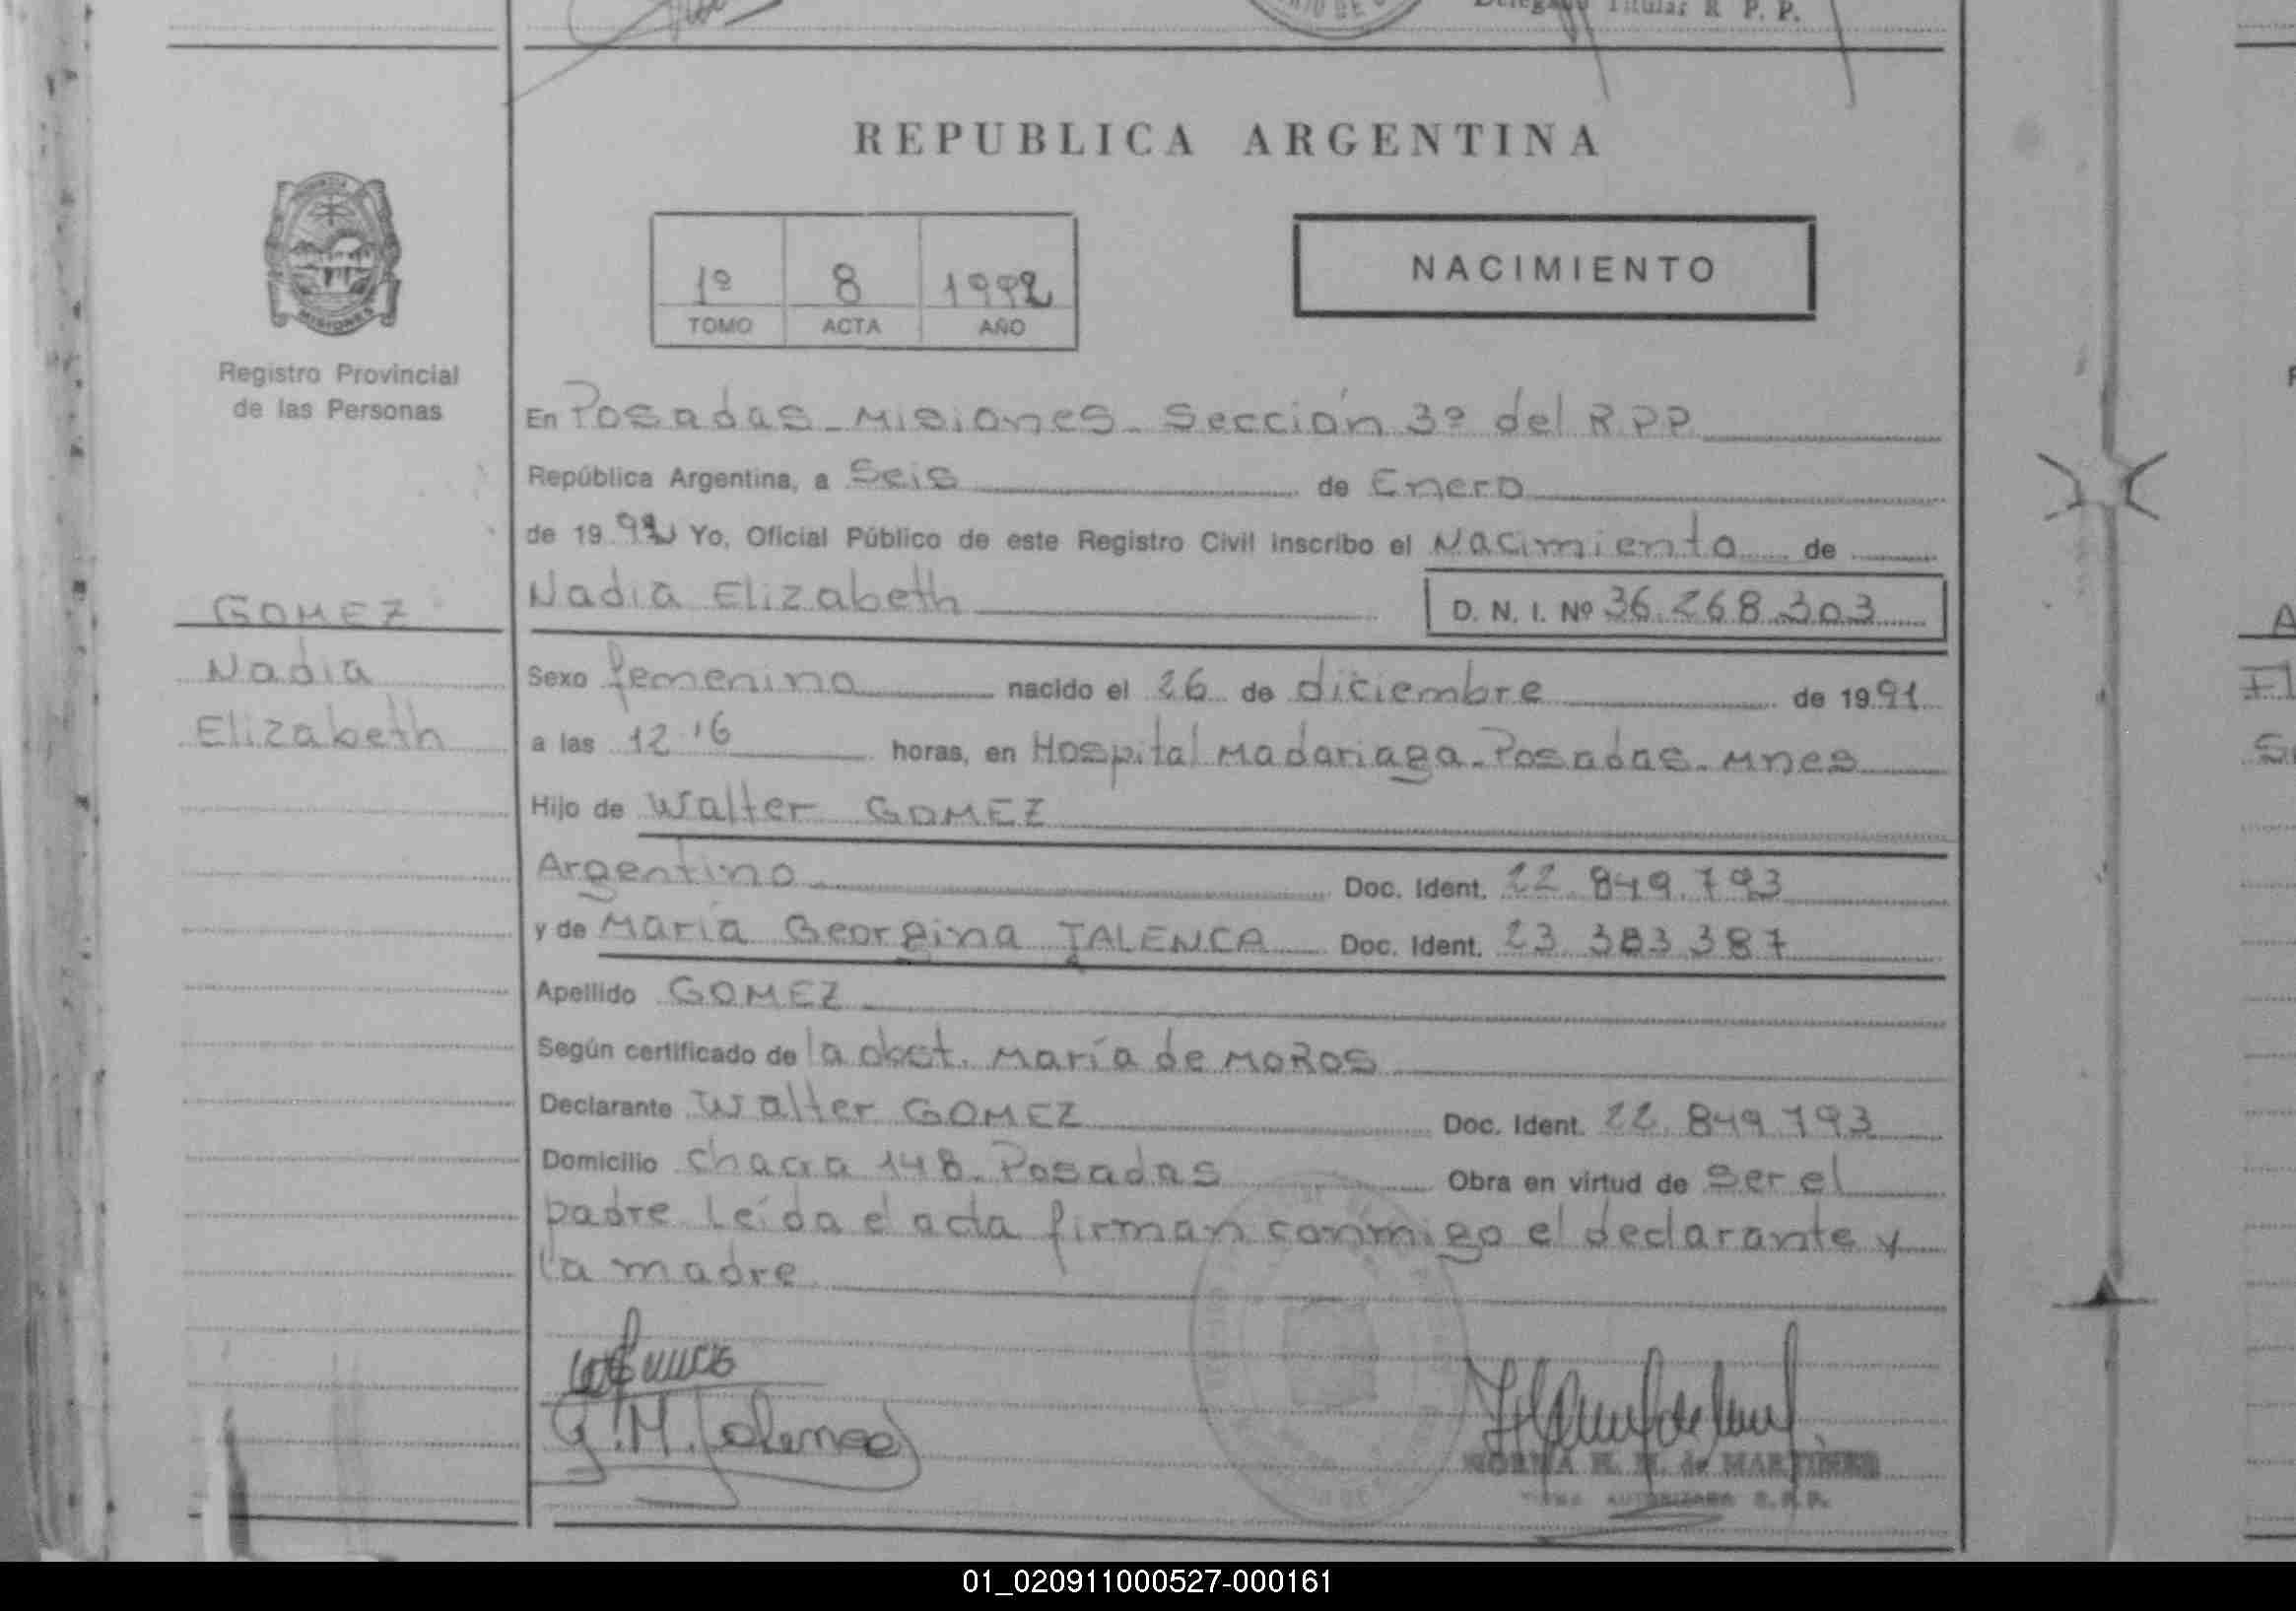 Titular R. P. P.
REPUBLICA ARGENTINA
MISIONES
Registro Provincial
de las Personas
1º 8 1992
TOMO ACTA AÑO
NACIMIENTO
En Posadas - Misiones - Sección 3º del R.P.P.
República Argentina, a Seis de Enero
de 1992 Yo, Oficial Público de este Registro Civil inscribo el Nacimiento de
Nadia Elizabeth D. N. I. Nº 36.268.303
GOMEZ
Nadia
Elizabeth
Sexo femenino nacido el 26 de diciembre de 1991
a las 12 16 horas, en Hospital Madariaga - Posadas - Mnes
Hijo de Walter GOMEZ
Argentino Doc. Ident. 22.849.793
y de María Georgina JALENCA Doc. Ident. 23.383.387
Apellido GOMEZ
Según certificado de la obst. María de MOROS
Declarante Walter GOMEZ Doc. Ident. 22.849.793
Domicilio Chacra 148 - Posadas Obra en virtud de Ser el
padre Leída el acta firman conmigo el declarante y
la madre
NORMA de MARTINEZ
AUTORIZADA R.P.P.
01_020911000527-000161